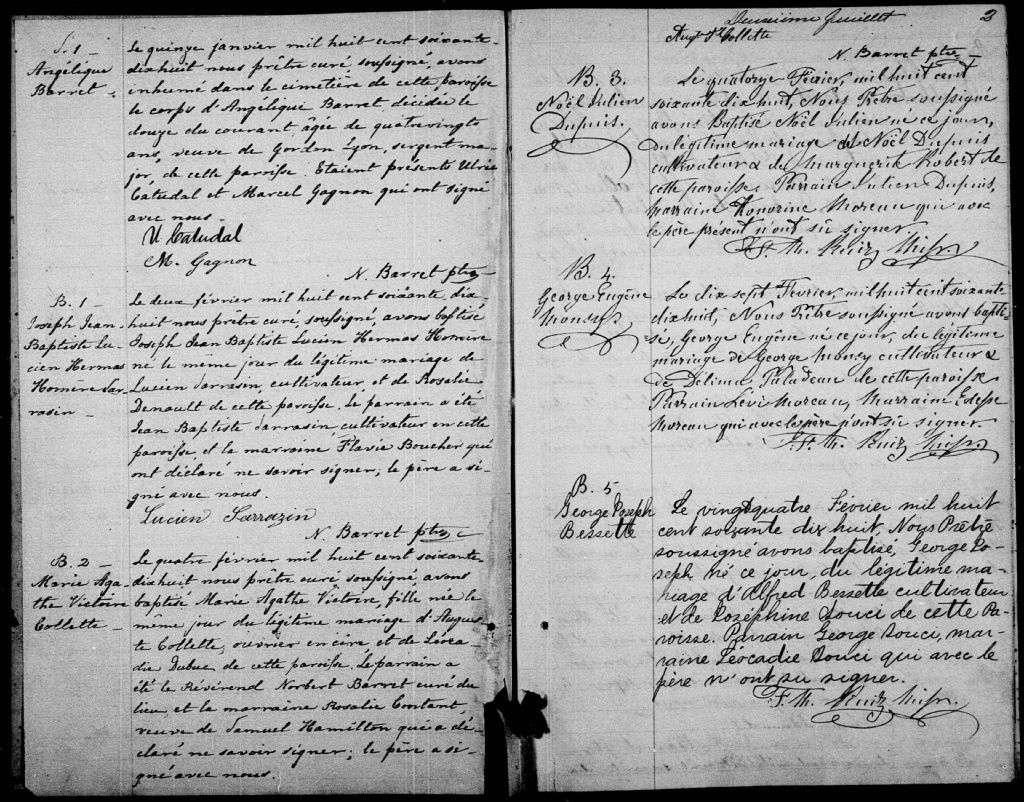 S. 1
Angélique
Barret
Le quinze janvier mil huit cent soixante-
dixhuit nous prêtre curé soussigné, avons
inhumé dans le cimetière de cette paroisse
le corps d'Angélique Barret décédée le
douze du courant âgée de quatrevingts
ans, veuve de Gordon Lyon, sergent ma-
jor de cette paroisse. Etaient présents Ulric
Catudal et Marcel Gagnon qui ont signé
avec nous.
U Catudal
M. Gagnon
N. Barret ptre
B. 1
Joseph Jean
Baptiste Lu-
cien Hermas
Homère Sar-
rasin
Le deux février mil huit cent soixante, dix-
huit nous prêtre curé, soussigné, avons baptisé
Joseph Jean Baptiste Lucien Hermas Homère
né le même jour du légitime mariage de
Lucien Sarrasin cultivateur et de Rosalie
Denault de cette paroisse. Le parrain a été
Jean Baptiste Sarrasin cultivateur en cette
paroisse, et la marraine Flavie Boucher qui
ont déclaré ne savoir signer; le père a si-
gné avec nous.
Lucien Sarrazin
N. Barret ptre
B. 2
Marie Aga-
the Victoire
Collette
Le quatre février mil huit cent soixante-
dixhuit nous prêtre curé soussigné, avons
baptisé Marie Agathe Victoire, fille née le
même jour du légitime mariage d'Augus-
te Collette, ouvrier en cire et de Léoca-
die Dubuc de cette paroisse. Le parrain a
été le Révérend Norbert Barret curé du
lieu, et la marraine Rosalie Contant,
veuve de Samuel Hamilton qui a dé-
claré ne savoir signer; le père a si-
gné avec nous.
Deuxième feuillet
2
Augte Collette
N. Barret ptre
B. 3.
Noël Julien
Dupuis.
Le quatorze Février, mil huit cent
soixante dix huit, Nous Prêtre soussigné
avons Baptisé Noël Julien né ce jour,
du légitime mariage de Noël Dupuis
cultivateur & de Marguerite Robert de
cette paroisse. Parrain Julien Dupuis,
marraine Honorine Moreau qui avec
le père présent n'ont su signer.
F. Th. Ruiz
B. 4.
George Eugène
Le dix sept Février, mil huit cent soixante
dix huit, Nous Prêtre soussigné avons bapti-
sé, George Eugène né ce jour, du légitime
mariage de George cultivateur &
de Délima Paladeau de cette paroisse
Parrain Lévi Moreau, Marraine
Moreau qui avec le père n'ont su signer.
F. Th. Ruiz
B. 5
George Joseph
Bessette
Le vingt quatre Février mil huit
cent soixante dix huit, Nous Prêtre
soussigné avons baptisé, George Jo-
seph né ce jour, du légitime ma-
riage d'Alfred Bessette cultivateur
et de Joséphine Souci de cette Pa-
roisse. Parrain George Souci, mar-
raine Léocadie Souci qui avec le
père n'ont su signer.
F. Th. Ruiz